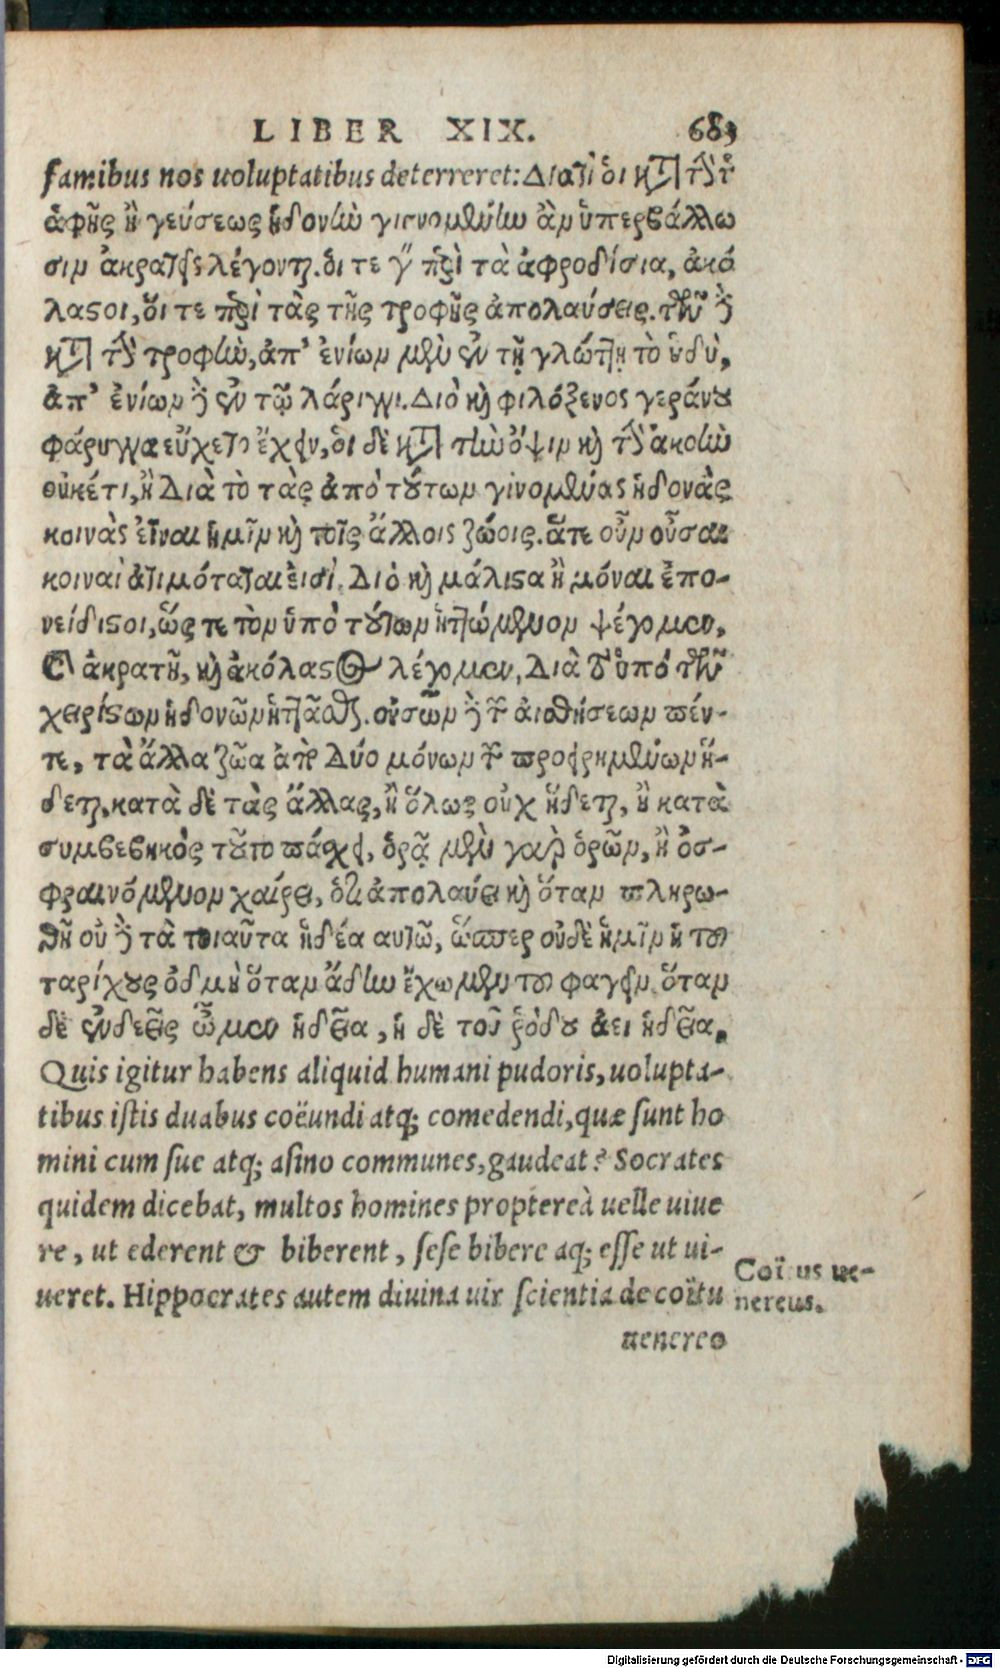 LIBER XIX. 683
famibus nos uoluptatibus deterreret: Διατί οἱ κατὰ τὴν τῆς
ἁφῆς ἢ γεύσεως ἡδονὴν γιγνομένην ἂν ὑπερβάλλω
σιν ἀκρατεῖς λέγονται. οἵ τε γὰρ περὶ τὰ ἀφροδίσια, ἀκό
λαστοι, οἵ τε περὶ τὰς τῆς τροφῆς ἀπολαύσεις. τῶν δὲ
κατὰ τὴν τροφὴν, ἀπ' ἐνίων μὲν ἐν τῇ γλώττῃ τὸ ἡδὺ,
ἀπ' ἐνίων δὲ ἐν τῷ λάριγγι. Διὸ καὶ φιλόξενος γεράνου
φάρυγγα εὔχετο ἔχειν, οἱ δὲ κατὰ τὴν ὄψιν καὶ τὴν ἀκοὴν
οὐκέτι, ἢ Διὰ τὸ τὰς ἀπὸ τούτων γινομένας ἡδονὰς
κοινὰς εἶναι ἡμῖν καὶ τοῖς ἄλλοις ζώοις. ἅτε οὖν οὖσαι
κοιναὶ ἀτιμόταται εἰσὶ. Διὸ καὶ μάλιστα ἢ μόναι ἐπο-
νείδιστοι, ὥς τε τὸν ὑπὸ τούτων ἡττώμενον ψέγομεν,
καὶ ἀκρατῆ, καὶ ἀκόλαστον λέγομεν, Διὰ τὸ ὑπὸ τῶν
χειρίστων ἡδονῶν ἡττᾶσθαι. οὐσῶν δὲ τῶν αἰσθήσεων πέν-
τε, τὰ ἄλλα ζῶα ἀπὸ Δύο μόνων τῶν προειρημένων ἥ-
δεται, κατὰ δὲ τὰς ἄλλας, ἢ ὅλως οὐχ ἥδεται, ἢ κατὰ
συμβεβηκὸς τοῦτο πάσχει, ὁρᾷ μὲν γὰρ ὁρῶν, ἢ ὀσ-
φραινόμενον χαίρει, ὅτι ἀπολαύει καὶ ὅταν πληρω-
θῇ οὐ δὲ τὰ τοιαῦτα ἡδέα αυτῶ, ὥσπερ οὐδὲ ἡμῖν ἡ τοῦ
ταρίχους ὀδμὴ ὅταν ἄδην ἔχωμεν τοῦ φαγεῖν. ὅταν
δὲ ἐνδεεῖς ὦμεν ἡδεῖα, ἡ δὲ τοῦ ῥόδου ἀει ἡδεῖα.
Quis igitur habens aliquid humani pudoris, uolupta-
tibus istis duabus coëundi atq; comedendi, quæ sunt ho
mini cum sue atq; asino communes, gaudeat? Socrates
quidem dicebat, multos homines propterea uelle uiue
re, ut ederent & biberent, sese bibere aq; esse ut ui-
ueret. Hippocrates autem diuina uir scientia de coïtu
uenereo
Coïtus ue-
nereus.
Digitalisierung gefördert durch die Deutsche Forschungsgemeinschaft - DFG